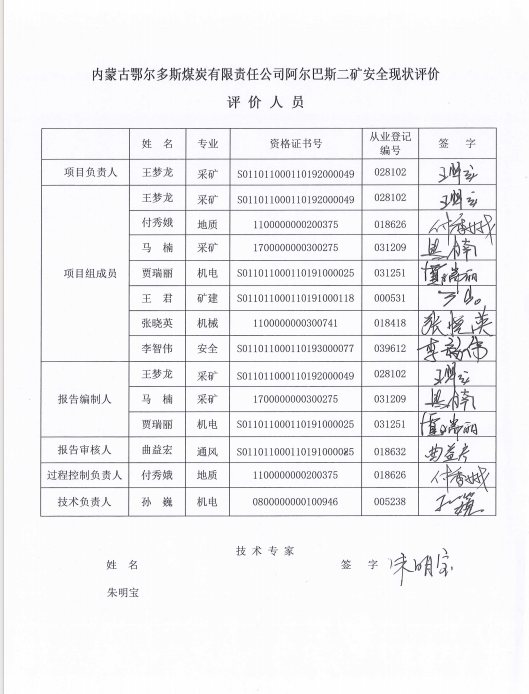 内蒙古鄂尔多斯煤炭有限责任公司阿尔巴斯二矿安全现状评价
评 价 人 员
姓 名 专业 资格证书号 从业登记编号 签 字
项目负责人 王梦龙 采矿 S011011000110192000049 028102
项目组成员 王梦龙 采矿 S011011000110192000049 028102
付秀娥 地质 1100000000200375 018626
马 楠 采矿 1700000000300275 031209
贾瑞丽 机电 S011011000110191000025 031251 贾瑞丽
王 君 矿建 S011011000110191000118 000531
张晓英 机械 1100000000300741 018418
李智伟 安全 S011011000110193000077 039612 李智伟
报告编制人 王梦龙 采矿 S011011000110192000049 028102
马 楠 采矿 1700000000300275 031209
贾瑞丽 机电 S011011000110191000025 031251 贾瑞丽
报告审核人 曲益宏 通风 S011011000110191000025 018632 曲益宏
过程控制负责人 付秀娥 地质 1100000000200375 018626
技术负责人 孙 巍 机电 0800000000100946 005238 孙巍
技 术 专 家
姓 名 签 字 朱明宝
朱明宝